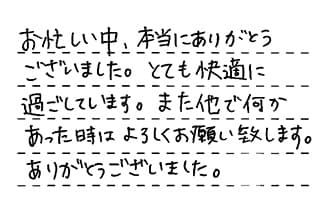 お忙しい中、本当にありがとう
ございました。とても快適に
過ごしています。また他で何か
あった時はよろしくお願い致します。
ありがとうございました。